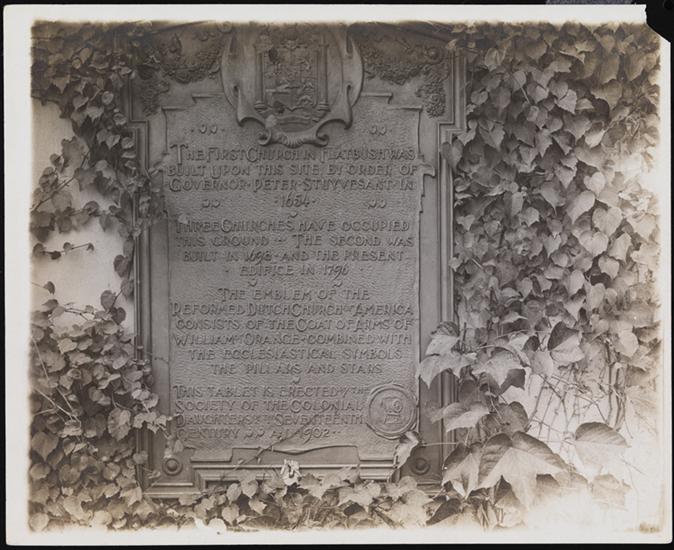 THE FIRST CHURCH IN FLATBUSH WAS
BUILT UPON THIS SITE BY ORDER OF
GOVERNOR · PETER · STUYVESANT · IN
· 1654 ·
THREE CHURCHES HAVE OCCUPIED
THIS GROUND ·· THE SECOND WAS
BUILT IN 1698 · AND THE PRESENT
· EDIFICE IN 1796 ·
THE EMBLEM OF THE
REFORMED DUTCH CHURCH IN AMERICA
CONSISTS OF THE COAT OF ARMS OF
WILLIAM OF ORANGE · COMBINED WITH
THE ECCLESIASTICAL SYMBOLS
THE PILLARS AND STARS
THIS TABLET IS ERECTED BY THE
SOCIETY OF THE COLONIAL
DAUGHTERS OF THE SEVENTEENTH
CENTURY 1902